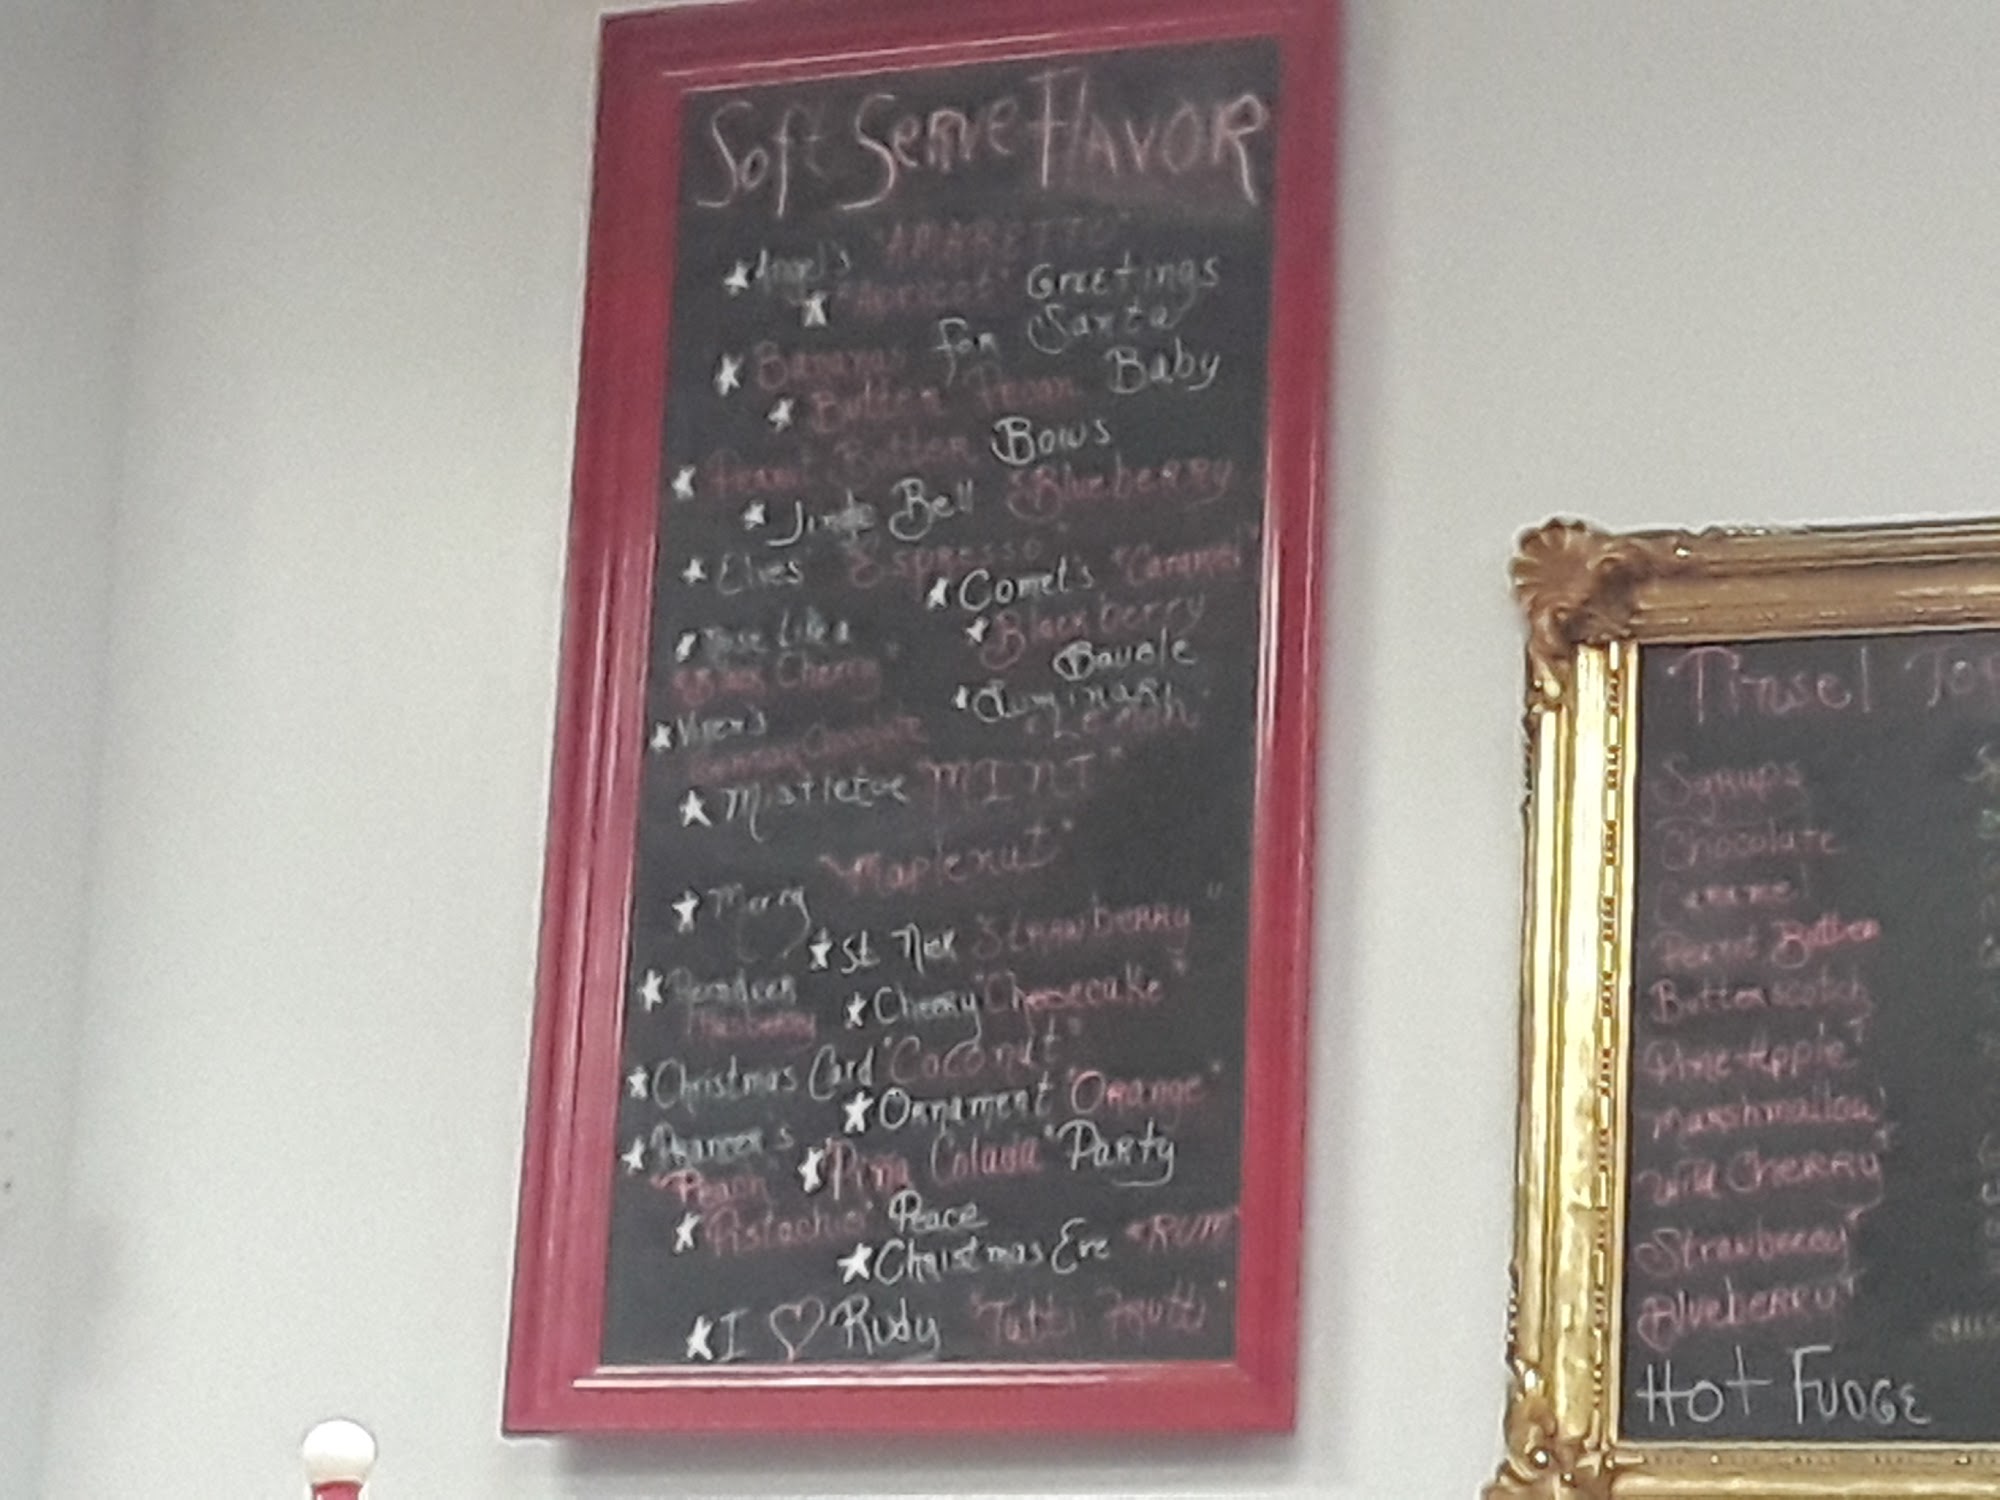 Soft Serve FLAVOR
Angel's "AMARETTO"
"Apricot" Greetings
Bananas for Santa
Butter Pecan Baby
Peanut Butter Bows
Jingle Bell "Blueberry
Elves' Espresso"
Comet's "Caramel"
Blackberry
Bauble
Nose Like a
Black Cherry"
Luminary
"Lemon"
Vixen's
Chocolate
Mistletoe "MINT"
Merry "Maplenut"
St. Nick Strawberry"
Cheery "Cheesecake"
Christmas Card "Coconut"
Ornament "Orange"
Prancer's
"Peach"
"Pina Colada" Party
Pistachio" Peace
Christmas Eve "RUM"
I ♡ Rudy "Tutti Frutti"
Tinsel
Syrups
Chocolate
Caramel
Peanut Butter
Butterscotch
Pine-Apple
Marshmallow
Wild CHERRY
Strawberry
Blueberry
HOT FUDGE